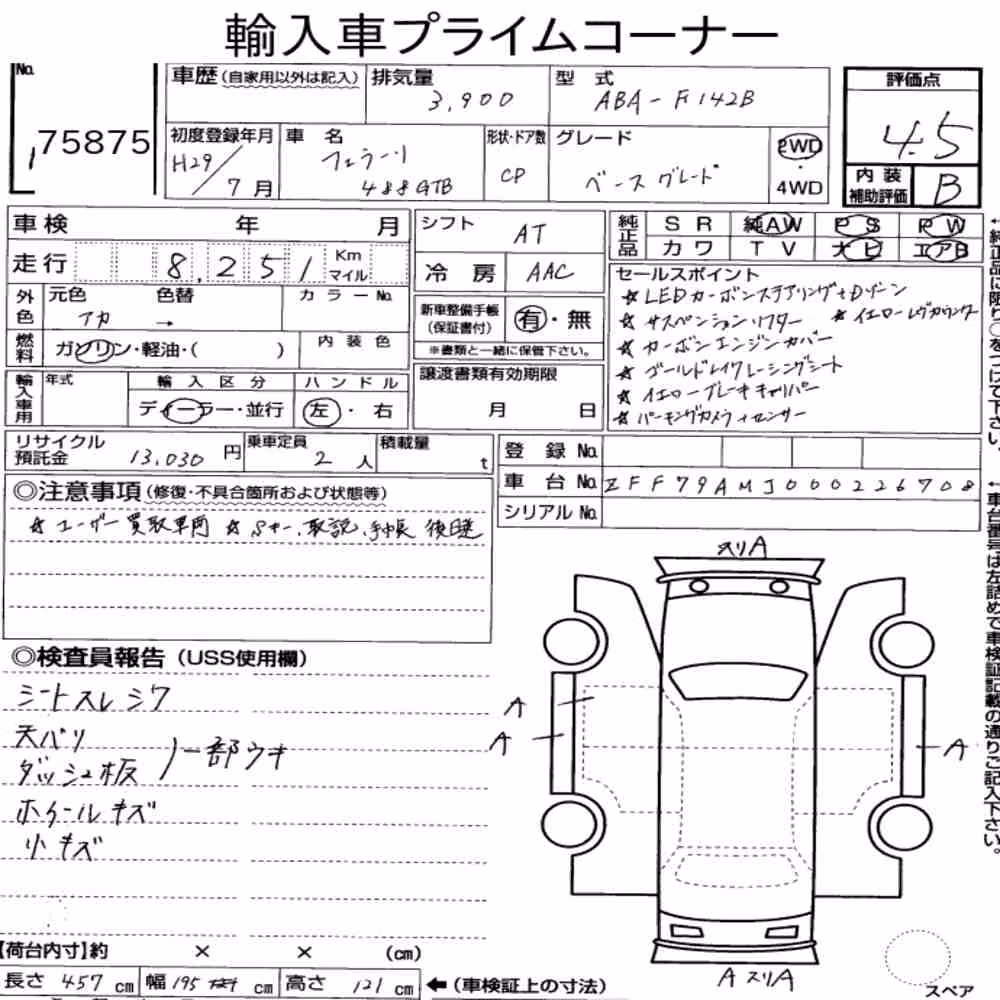 輸入車プライムコーナー
No. 75875
車歴(自家用以外は記入)
排気量 3,900
型式 ABA-F142B
評価点 4.5
内装補助評価 B
初度登録年月 H29/7月
車名 フェラーリ 488GTB
形状・ドア数 CP
グレード ベースグレード
2WD・4WD
車検 年 月
シフト AT
純正品 SR 純AW PS PW
カワ TV ナビ エアB
走行 8,251 Km マイル
冷房 AAC
外色 元色 アカ 色替 → カラーNo.
燃料 ガソリン・軽油・( )
内装色
新車整備手帳(保証書付) 有・無
※書類と一緒に保管下さい。
セールスポイント
☆LEDカーボンステアリング+Dゾーン
☆サスペンションリフター ☆イエローレヴカウンター
☆カーボンエンジンカバー
☆ゴールドレイクレーシングシート
☆イエローブレーキキャリパー
☆パーキングカメラ+センサー
輸入車用 年式
輸入区分 ディーラー・並行
ハンドル 左・右
譲渡書類有効期限 月 日
リサイクル預託金 13,030円
乗車定員 2人
積載量 t
登録No.
車台No. ZFF79AMJ000226708
シリアルNo.
◎注意事項(修復・不具合箇所および状態等)
☆ユーザー買取車両 ☆Sキー、取説、手帳 後日送
◎検査員報告(USS使用欄)
シートスレシワ
天バリ
ダッシュ板 一部ウキ
ホイールキズ
小キズ
スリA
A
A
A
A スリA
スペア
【荷台内寸】約 × × (cm)
長さ 457cm 幅 195cm 高さ 121cm ←(車検証上の寸法)
←純正品に限り○をつけて下さい。
←車台番号は左詰めで車検証記載の通りご記入下さい。